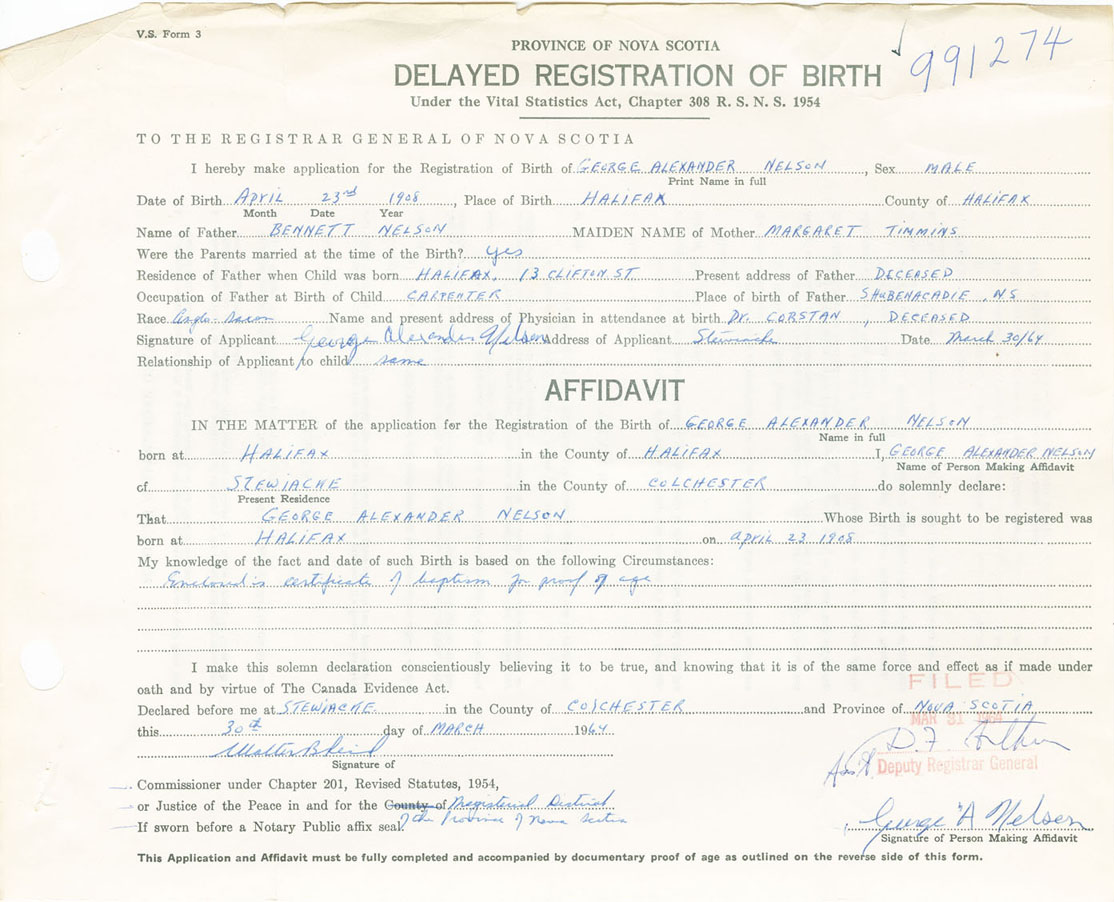 V.S. Form 3
991274
PROVINCE OF NOVA SCOTIA
DELAYED REGISTRATION OF BIRTH
Under the Vital Statistics Act, Chapter 308 R. S. N. S. 1954
TO THE REGISTRAR GENERAL OF NOVA SCOTIA
I hereby make application for the Registration of Birth of GEORGE ALEXANDER NELSON, Sex MALE
Print Name in full
Date of Birth APRIL 23rd 1908, Place of Birth HALIFAX County of HALIFAX
Month Date Year
Name of Father BENNETT NELSON MAIDEN NAME of Mother MARGARET TIMMINS
Were the Parents married at the time of the Birth? yes
Residence of Father when Child was born HALIFAX. 13 CLIFTON ST Present address of Father DECEASED
Occupation of Father at Birth of Child CARPENTER Place of birth of Father SHUBENACADIE, NS
Race Anglo-Saxon Name and present address of Physician in attendance at birth DR. CORSTAN, DECEASED
Signature of Applicant George Alexander Nelson Address of Applicant Stewiacke Date March 30/64
Relationship of Applicant to child same
AFFIDAVIT
IN THE MATTER of the application for the Registration of the Birth of GEORGE ALEXANDER NELSON
Name in full
born at HALIFAX in the County of HALIFAX I, GEORGE ALEXANDER NELSON
Name of Person Making Affidavit
of STEWIACKE in the County of COLCHESTER do solemnly declare:
Present Residence
That GEORGE ALEXANDER NELSON Whose Birth is sought to be registered was
born at HALIFAX on APRIL 23 1908
My knowledge of the fact and date of such Birth is based on the following Circumstances:
Enclosed is certificate of baptism for proof of age
I make this solemn declaration conscientiously believing it to be true, and knowing that it is of the same force and effect as if made under
oath and by virtue of The Canada Evidence Act.
FILED
Declared before me at STEWIACKE in the County of COLCHESTER and Province of NOVA SCOTIA
MAR 31 1964
this 30th day of MARCH 1964
Walter B Reid
Signature of
D. F.
Ass't. Deputy Registrar General
Commissioner under Chapter 201, Revised Statutes, 1954,
or Justice of the Peace in and for the County of Magisterial District
of the Province of Nova Scotia
If sworn before a Notary Public affix seal.
George A Nelson
Signature of Person Making Affidavit
This Application and Affidavit must be fully completed and accompanied by documentary proof of age as outlined on the reverse side of this form.